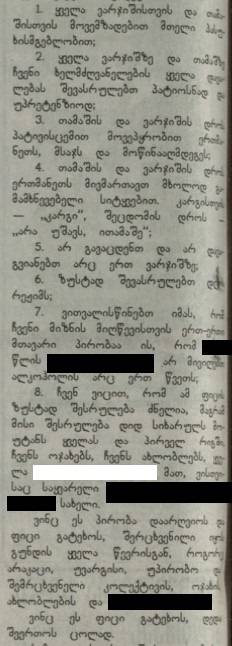 1. ყველა ვარჯიშისთვის და
შისთვის მოვემზადებით მთელი
ხისმგებლობით;
2. ყველა ვარჯიშზე და თამაშზე
ჩვენი ხელმძღვანელების ყველა
ლებას შევასრულებთ პატიოსნად და
უპრეტენზიოდ;
3. თამაშის და ვარჯიშის დროს
პატივისცემით მოვეპყრობით
ნეთს, მსაჯს და მოწინააღმდეგეს;
4. თამაშის და ვარჯიშის დროს
ერთმანეთს მივმართავთ მხოლოდ
მამხნევებელი სიტყვებით. კარგისთვის
— „კარგი“, შეცდომის დროს —
„არა უშავს, ითამაშე“;
5. არ გავაცდენთ და არ
გვიანებთ არც ერთ ვარჯიშზე;
6. ზუსტად შევასრულებთ
რეჟიმს;
7. ვითვალისწინებთ იმას, რომ
ჩვენი მიზნის მიღწევისთვის ერთ-ერთი
მთავარი პირობაა ის, რომ
წლის არ მივიღებთ
ალკოჰოლის არც ერთ წვეთს;
8. ჩვენ ვიცით, რომ ამ ფიცის
ზუსტად შესრულება ძნელია, მაგრამ
მისი შესრულება დიდ სიხარულს
უტანს ყველას და პირველ რიგში
ჩვენს ოჯახებს, ჩვენს ახლობლებს,
ლა მათ, ვისთვის
საც საყვარელი
სახელი.
ვინც ეს პირობა დაარღვიოს და
ფიცი გატეხოს, შერცხვენილი იყოს
გუნდის ყველა წევრისგან, როგორც
არაკაცი, უვარგისი, უპირობო და
შემრცხვენელი კოლექტივის, ოჯახის,
ახლობლების და
ვინც ეს ფიცი გატეხოს, დედა
შეერთოს ცოლად.